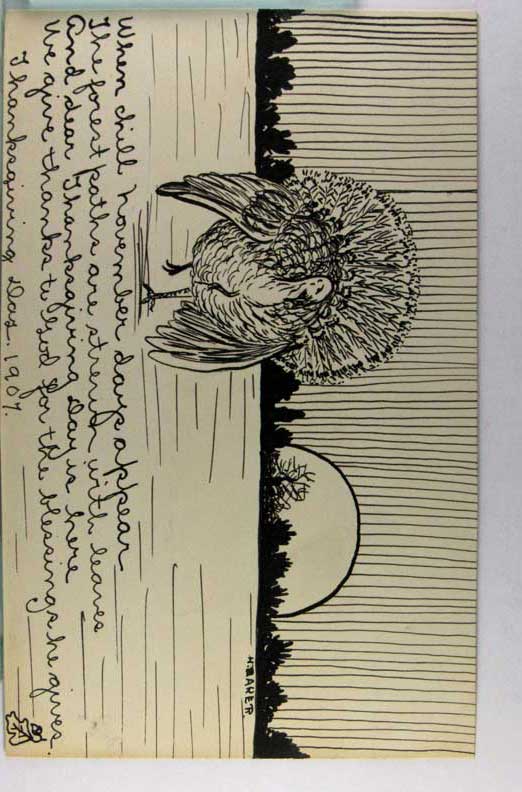 H. BAHER
When chill November days appear
The forest paths are strewn with leaves
And dear Thanksgiving Day is here
We give thanks to God for the blessings he gives.
Thanksgiving Day. 1907.